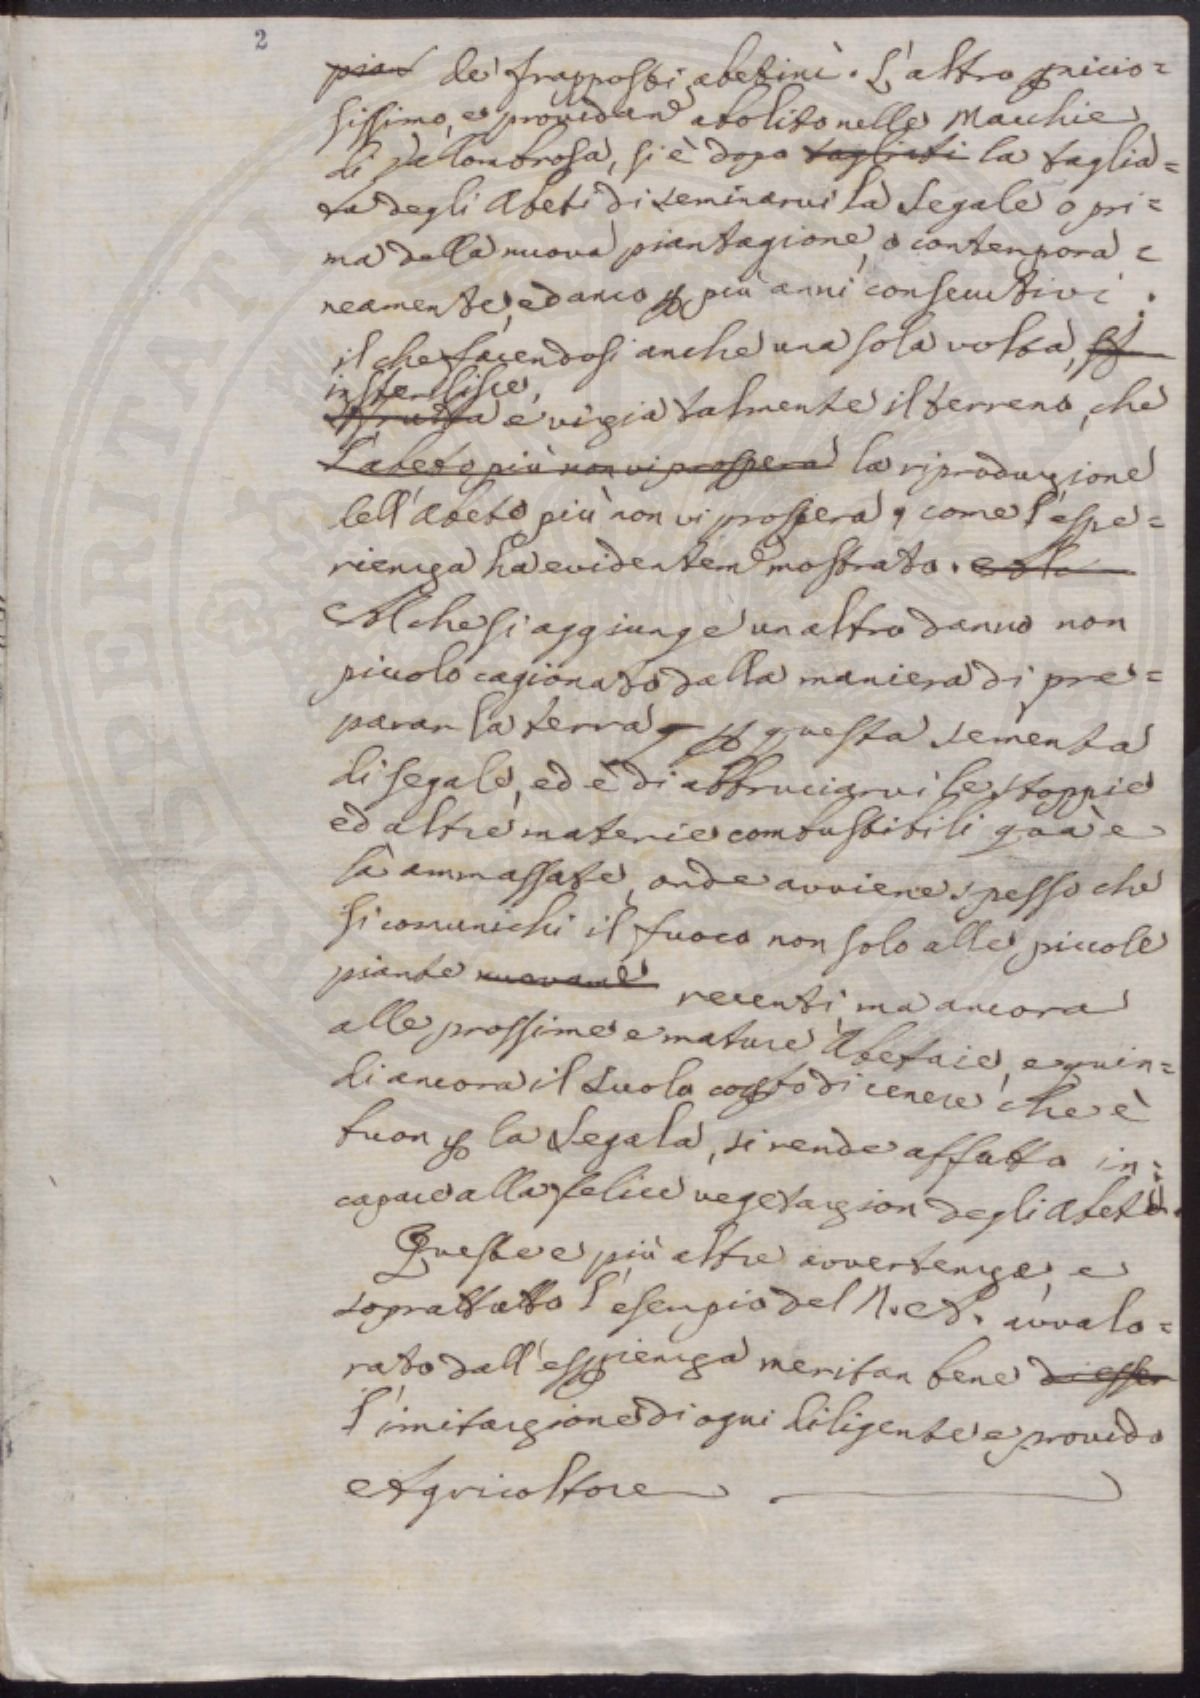 2
pian de' frapposti abetini. L'altro pnicio=
sissimo, e providam.e abolito nelle Macchie
di Vallombrosa, si è dopo tagliati la taglia=
ta degli Abeti di seminarvi la Segale o pri=
ma della nuova piantagione, o contempora=
neamente, ed anco p più anni consecutivi.
il che facendosi anche una sola volta,
insterilisce,
sfrutta e vizia talmente il terreno, che
l'abeto più non vi prospera la riproduzione
dell'Abeto più non vi prospera, come l'espe=
rienza ha evidentem.e mostrato.
Al che si aggiunge un altro danno non
piccolo cagionato dalla maniera di pre=
parar la terra p questa sementa
di segale, ed è di abbruciarvi le stoppie
ed altre materie combustibili qua e
là ammassate, onde avviene spesso che
si comunichi il fuoco non solo alle piccole
piante nuovam.e recenti, ma ancora
alle prossime e mature Abetaie, e quin=
di ancora il suolo cotto di cenere che è
buon p la Segala, si rende affatto in=
capace alla felice vegetazion degli Abeti.
Queste e più altre avvertenze, e
soprattutto l'esempio del N. A. avvalo=
rato dall'esperienza meritan bene di esser
l'imitazione di ogni diligente e provido
Agricoltore
PROSPERITATI